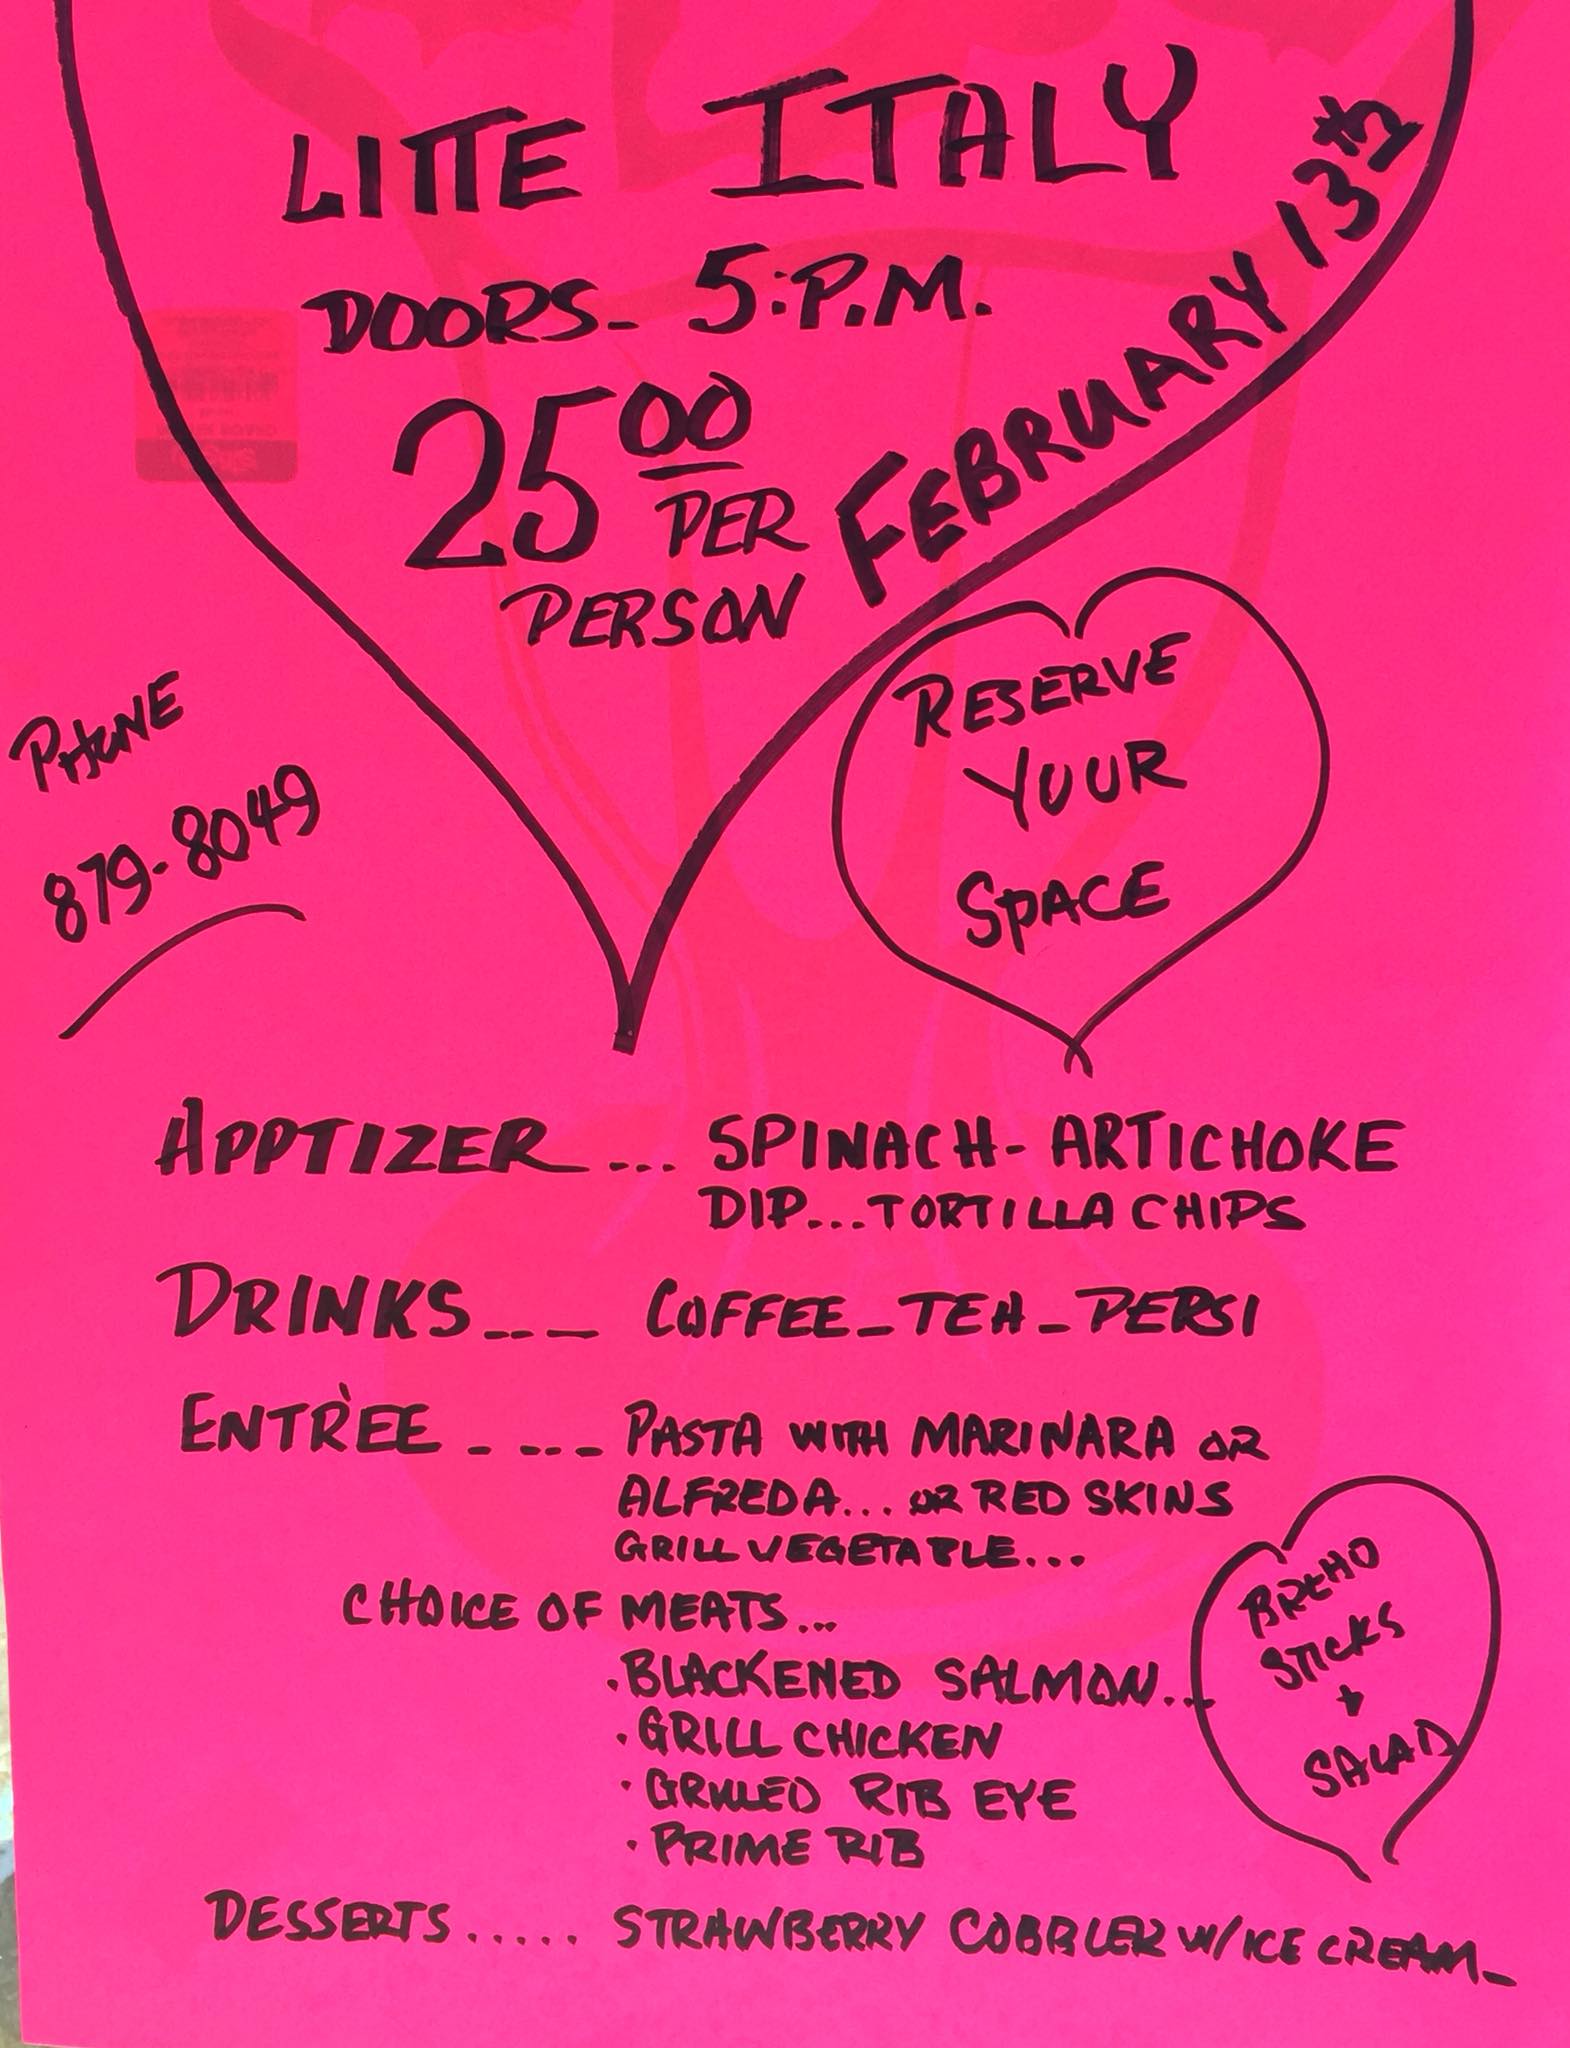 LITTE ITALY
DOORS- 5:P.M.
25 00
PER
PERSON
FEBRUARY 13th
PHONE
879-8049
RESERVE
YOUR
SPACE
APPTIZER... SPINACH- ARTICHOKE
DIP...TORTILLA CHIPS
DRINKS--- COFFEE-TEA-PEPSI
ENTRÈE ---- PASTA WITH MARINARA OR
ALFREDA... OR RED SKINS
GRILL VEGETABLE...
CHOICE OF MEATS...
.BLACKENED SALMON...
.GRILL CHICKEN
.GRILLED RIB EYE
.PRIME RIB
BREAD
STICKS
+
SALAD
DESSERTS..... STRAWBERRY COBBLER W/ICE CREAM-